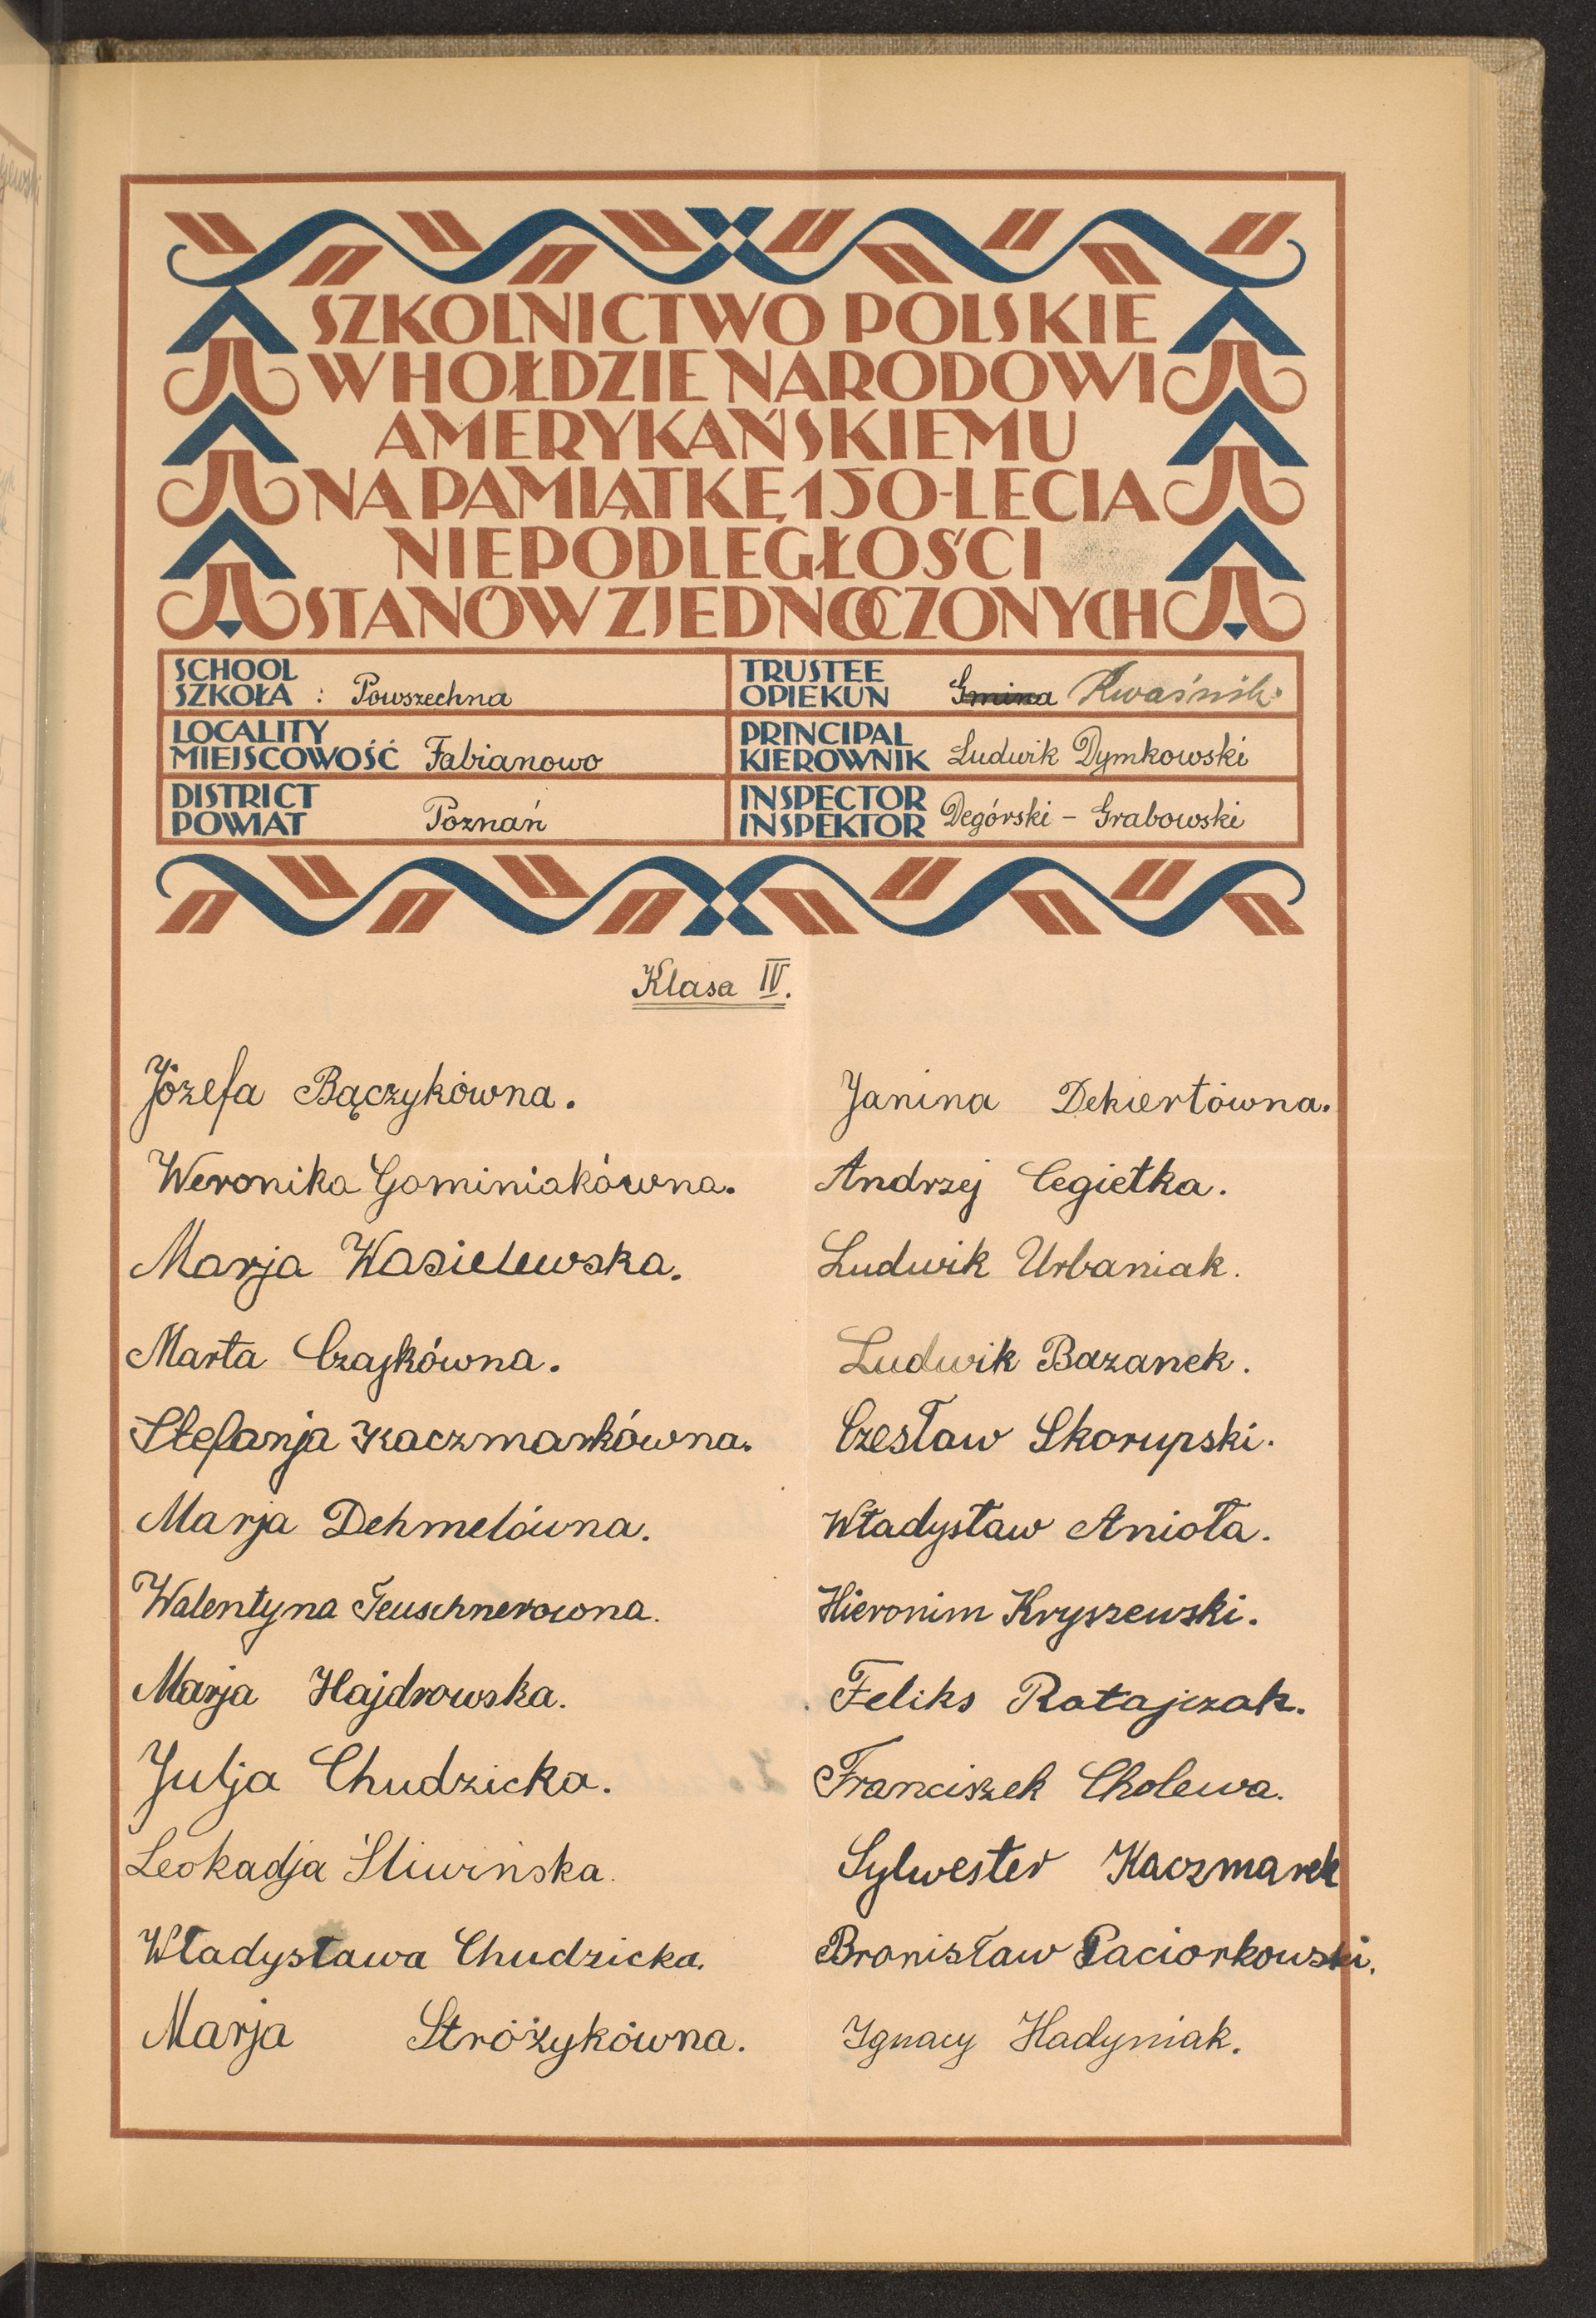 SZKOLNICTWO POLSKIE
W HOŁDZIE NARODOWI
AMERYKAŃSKIEMU
NA PAMIĄTKĘ 150-LECIA
NIEPODLEGŁOŚCI
STANÓW ZJEDNOCZONYCH
SCHOOL
SZKOŁA : Powszechna
TRUSTEE
OPIEKUN Gmina Kwaśnik
LOCALITY
MIEJSCOWOŚĆ Fabianowo
PRINCIPAL
KIEROWNIK Ludwik Dymkowski
DISTRICT
POWIAT Poznań
INSPECTOR
INSPEKTOR Degórski - Grabowski
Klasa IV.
Józefa Bączykówna.
Weronika Gominiakówna.
Marja Wasielewska.
Marta Czajkówna.
Stefanja Kaczmarkówna.
Marja Dehmelówna.
Walentyna Teuschnerowna.
Marja Hajdrowska.
Julja Chudzicka.
Leokadja Śliwińska.
Władysława Chudzicka.
Marja Stróżykówna.
Janina Dekiertówna.
Andrzej Cegiełka.
Ludwik Urbaniak.
Ludwik Bazanek.
Czesław Skorupski.
Władysław Anioła.
Hieronim Kryszewski.
Feliks Ratajczak.
Franciszek Cholewa.
Sylwester Kaczmarek
Bronisław Paciorkowski.
Ignacy Hadyniak.